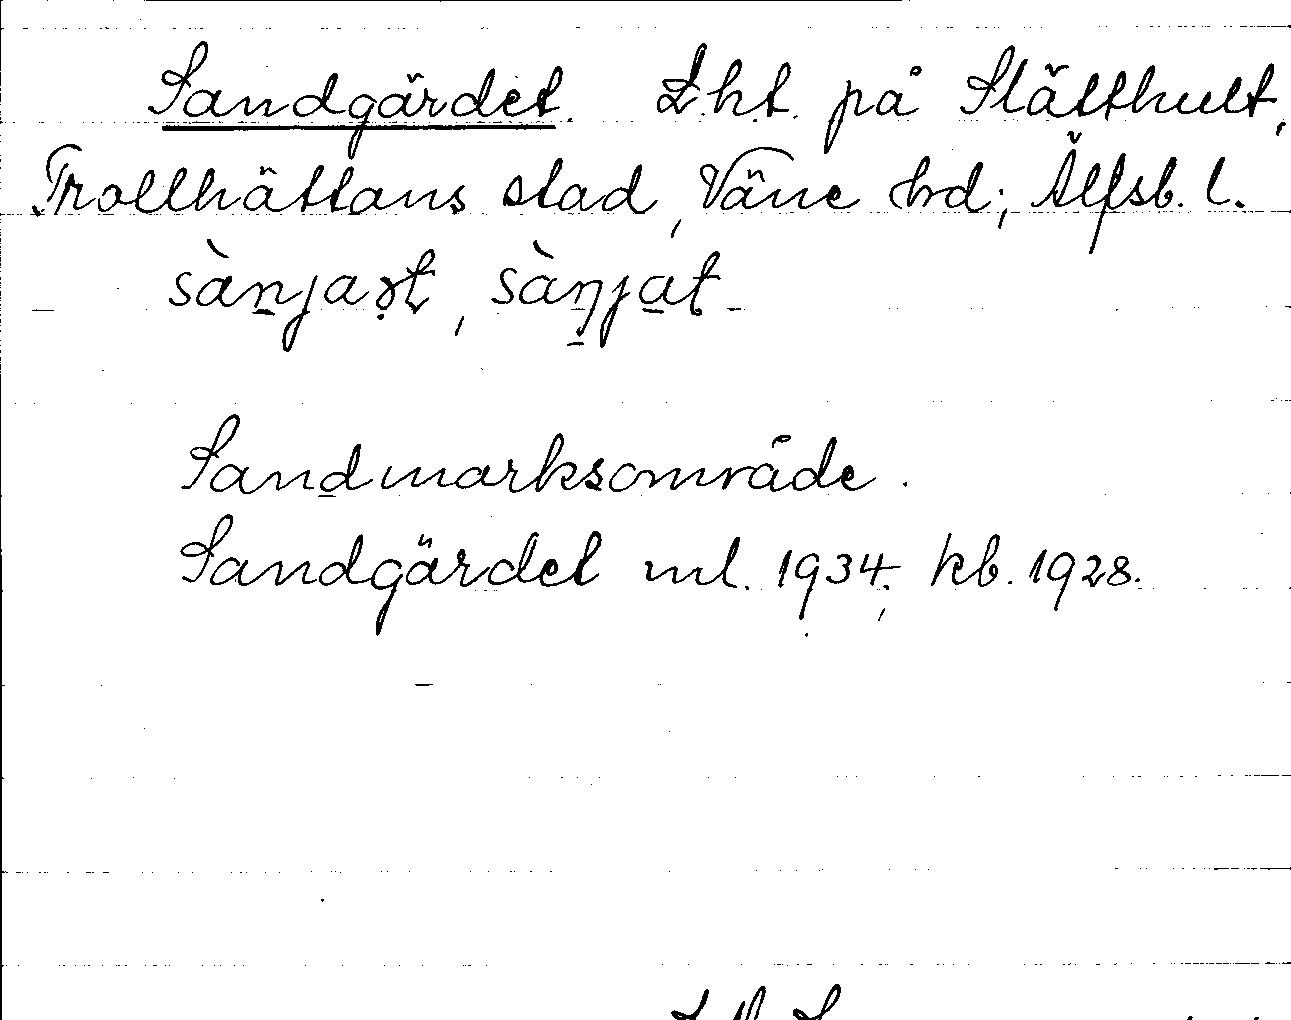 Sandgärdet. Lht. på Slätthult,
Trollhättans stad, Väne hd; Älfsb. l.
sàn̠jaṛt, sàŋ̠ja̠t
Sandmarksområde.
Sandgärdet ml. 1934; kb. 1928.